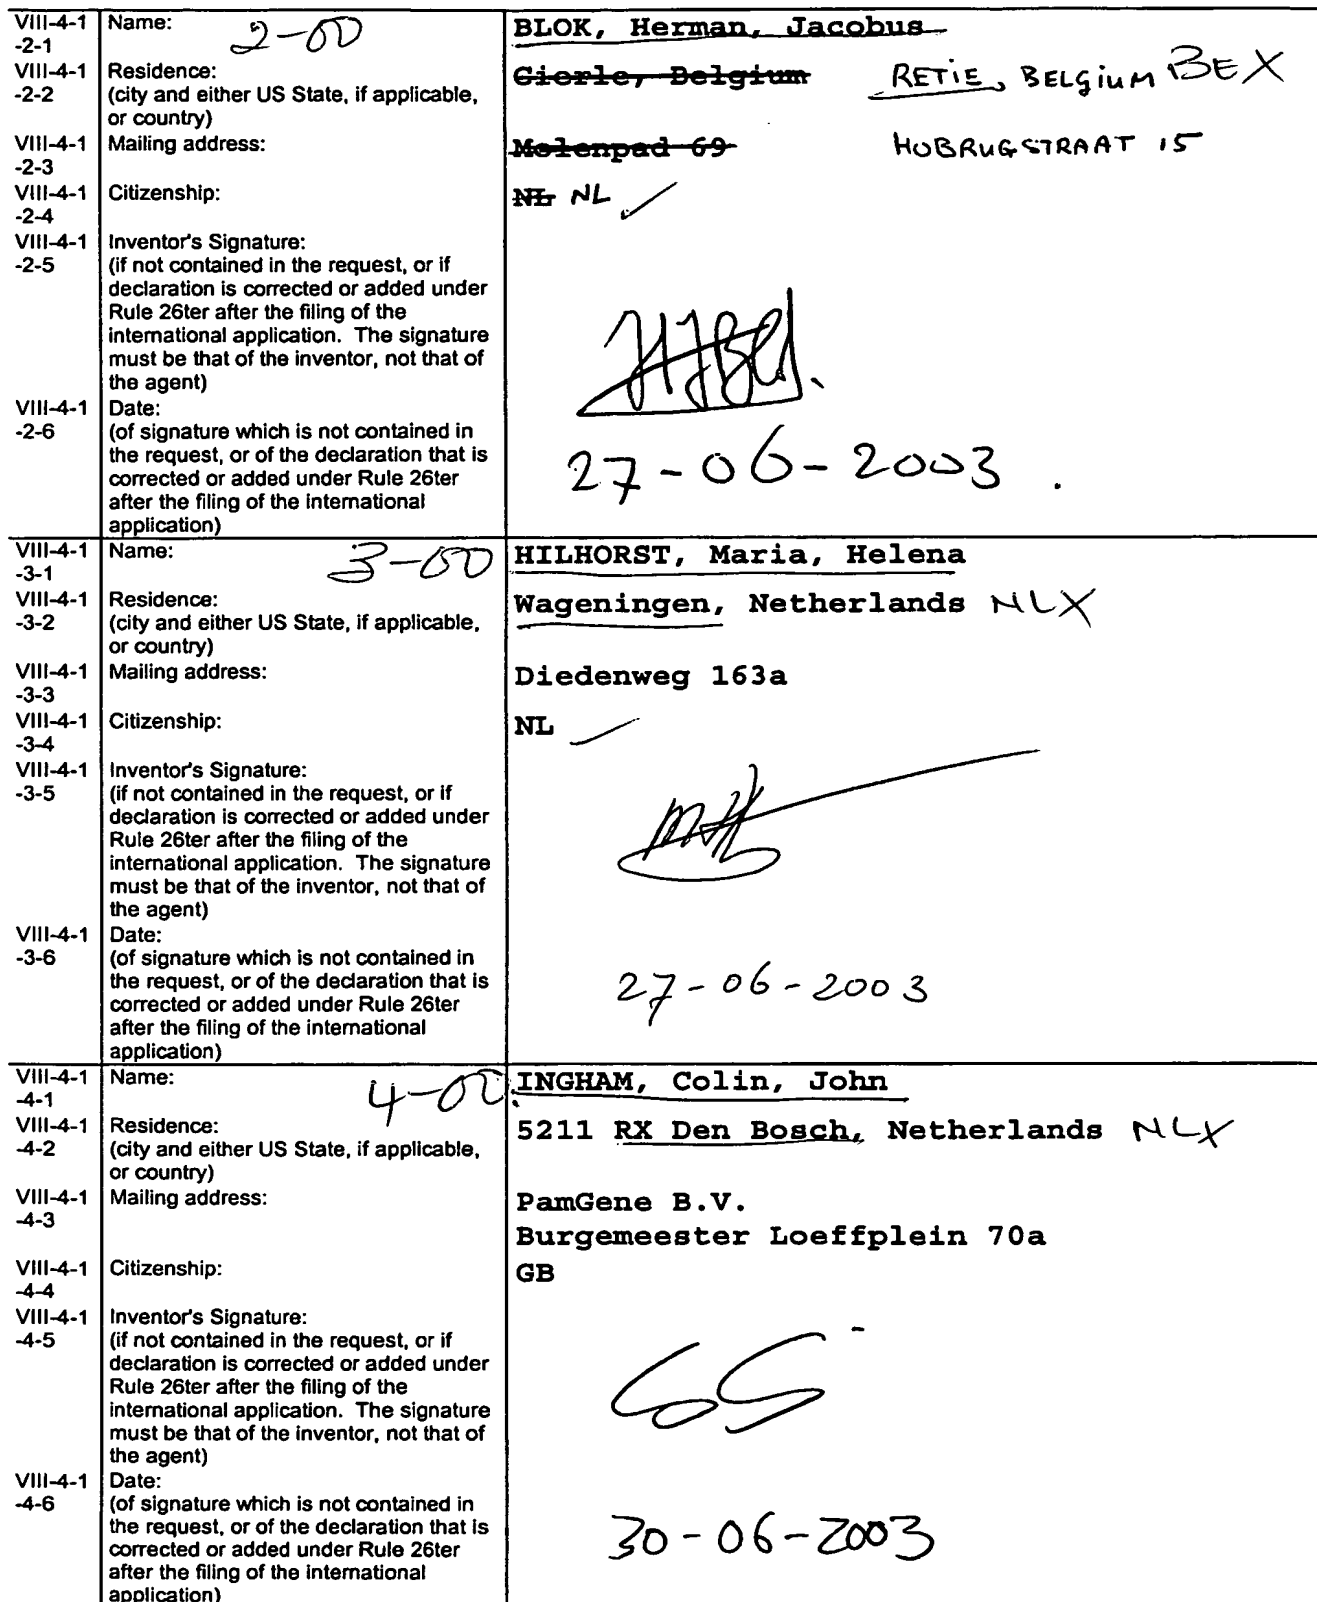 VIII-4-1 Name: 2-00 BLOK, Herman, Jacobus
-2-1
VIII-4-1 Residence: Gierle, Belgium RETIE, BELGIUM BEX
-2-2 (city and either US State, if applicable,
or country)
VIII-4-1 Mailing address: Molenpad 69 HOBRUGSTRAAT 15
-2-3
VIII-4-1 Citizenship: NL NL
-2-4
VIII-4-1 Inventor's Signature:
-2-5 (if not contained in the request, or if
declaration is corrected or added under
Rule 26ter after the filing of the
international application. The signature
must be that of the inventor, not that of
the agent)
VIII-4-1 Date:
-2-6 (of signature which is not contained in
the request, or of the declaration that is
corrected or added under Rule 26ter
after the filing of the international
application)
27-06-2003.
VIII-4-1 Name: 3-00 HILHORST, Maria, Helena
-3-1
VIII-4-1 Residence: Wageningen, Netherlands NLX
-3-2 (city and either US State, if applicable,
or country)
VIII-4-1 Mailing address: Diedenweg 163a
-3-3
VIII-4-1 Citizenship: NL
-3-4
VIII-4-1 Inventor's Signature:
-3-5 (if not contained in the request, or if
declaration is corrected or added under
Rule 26ter after the filing of the
international application. The signature
must be that of the inventor, not that of
the agent)
VIII-4-1 Date:
-3-6 (of signature which is not contained in
the request, or of the declaration that is
corrected or added under Rule 26ter
after the filing of the international
application)
27-06-2003
VIII-4-1 Name: 4-00 INGHAM, Colin, John
-4-1
VIII-4-1 Residence: 5211 RX Den Bosch, Netherlands NLX
-4-2 (city and either US State, if applicable,
or country)
VIII-4-1 Mailing address: PamGene B.V.
-4-3 Burgemeester Loeffplein 70a
VIII-4-1 Citizenship: GB
-4-4
VIII-4-1 Inventor's Signature:
-4-5 (if not contained in the request, or if
declaration is corrected or added under
Rule 26ter after the filing of the
international application. The signature
must be that of the inventor, not that of
the agent)
VIII-4-1 Date:
-4-6 (of signature which is not contained in
the request, or of the declaration that is
corrected or added under Rule 26ter
after the filing of the international
application)
30-06-2003